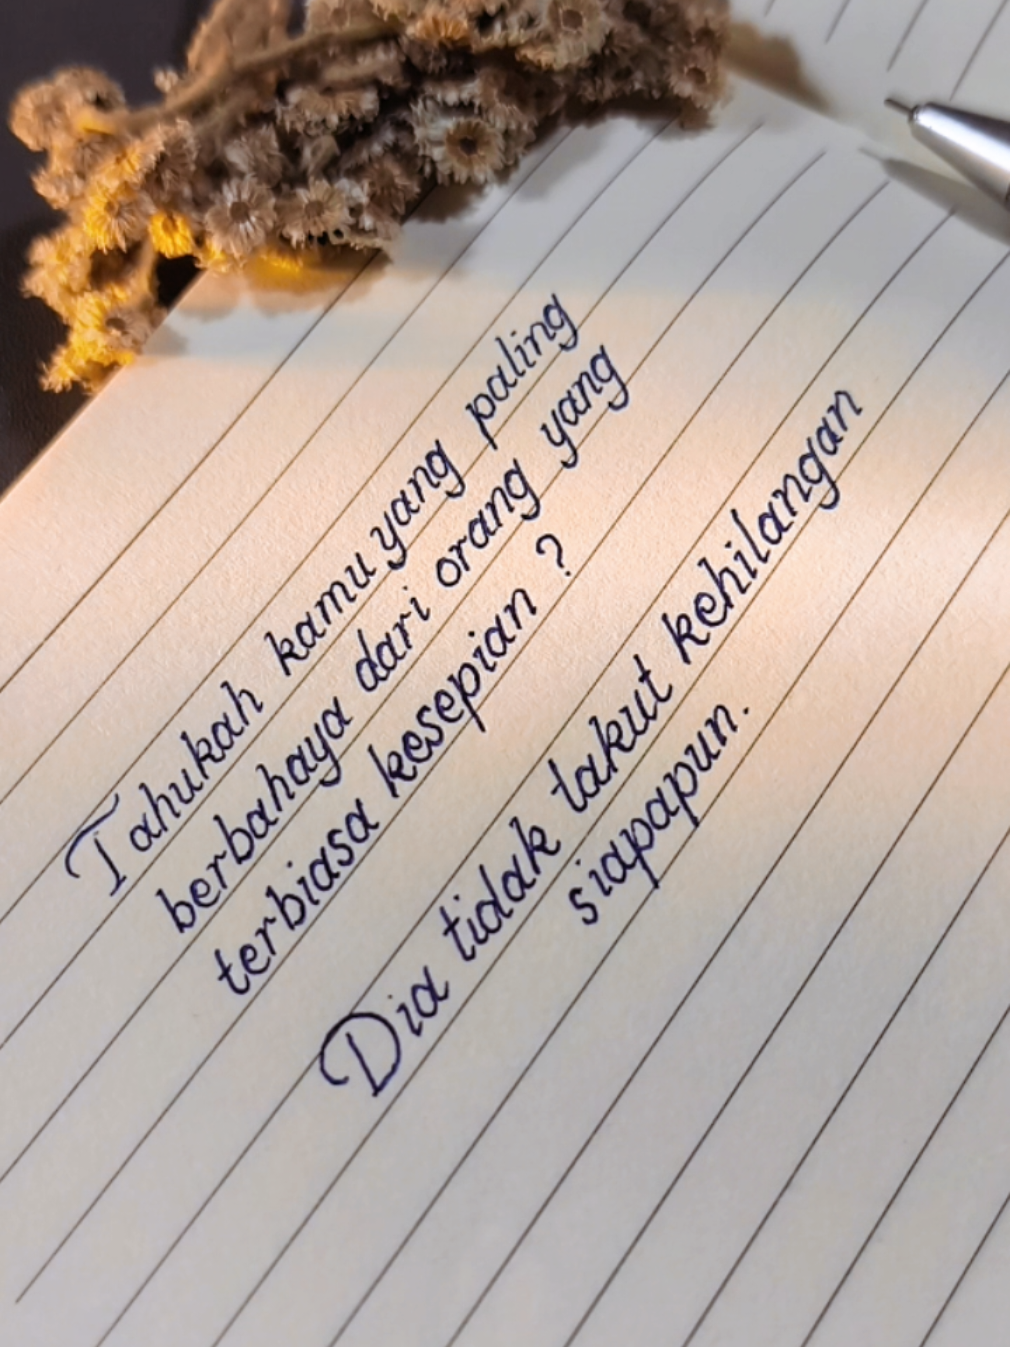 Tahukah kamu yang paling
berbahaya dari orang yang
terbiasa kesepian ?
Dia tidak takut kehilangan
siapapun.